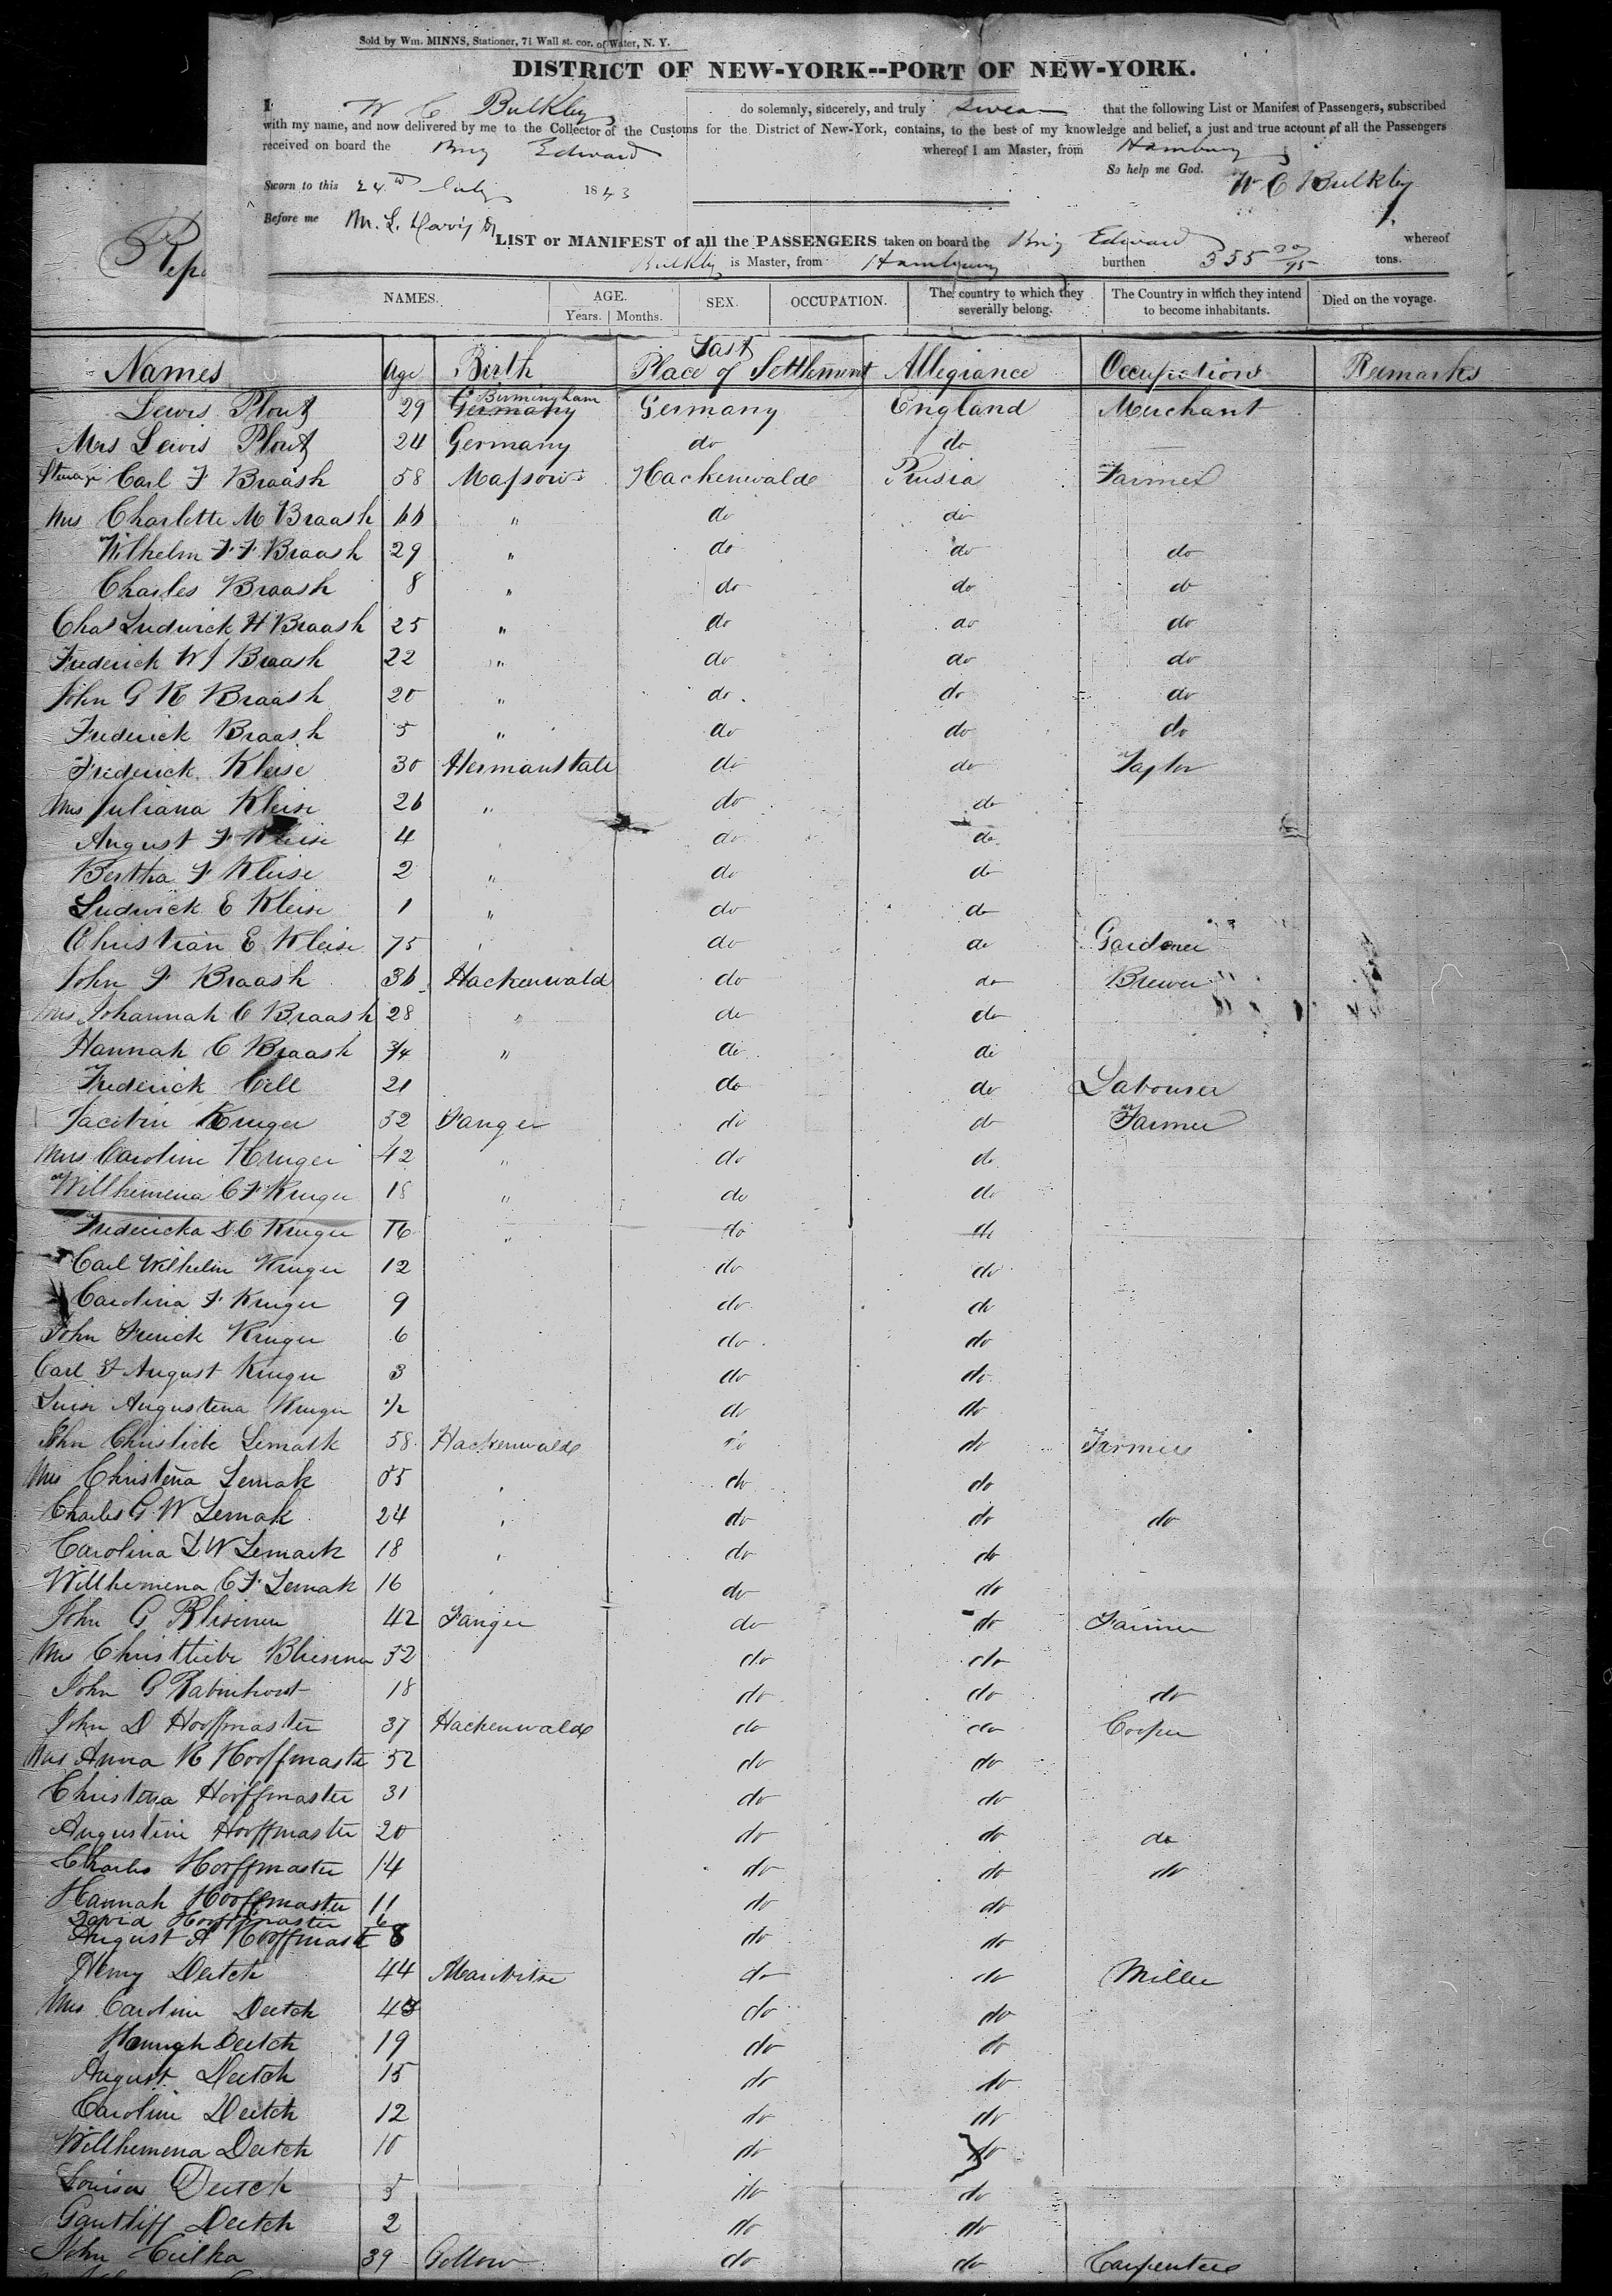 Sold by Wm. MINNS, Stationer, 71 Wall st. cor. of Water, N. Y.
DISTRICT OF NEW-YORK--PORT OF NEW-YORK.
I W C Bulkley do solemnly, sincerely, and truly swear that the following List or Manifest of Passengers, subscribed
with my name, and now delivered by me to the Collector of the Customs for the District of New-York, contains, to the best of my knowledge and belief, a just and true account of all the Passengers
received on board the Brig Edward whereof I am Master, from Hamburg
So help me God.
Sworn to this 24th July 1843 W C Bulkley
Before me
LIST or MANIFEST of all the PASSENGERS taken on board the Brig Edward whereof
Bulkley is Master, from Hamburg burthen 355 tons.
NAMES. AGE. Years. Months. SEX. OCCUPATION. The country to which they severally belong. The Country in which they intend to become inhabitants. Died on the voyage.
Repo
Names Age Birth Last Place of Settlement Allegiance Occupations Remarks
Lewis Ploutz 29 Germany Birmingham Germany England Merchant
Mrs Lewis Ploutz 24 Germany do do
Steerage Carl F Braash 58 Massow Hackenwalde Prusia Farmer
Mrs Charlotte M Braash 66 " do do
Wilhelm F F Braash 29 " do do do
Charles Braash 8 " do do do
Chas Ludwick H Braash 25 " do do do
Frederick W J Braash 22 " do do do
John G R Braash 20 " do do do
Frederick Braash 5 " do do do
Frederick Kleise 30 Hermanstate do do Taylor
Mrs Juliana Kleise 26 " do do
August F Kleise 4 do do
Bertha F Kleise 2 " do do
Ludwick E Kleise 1 " do do
Christian E Kleise 75 " do do Gardener
John F Braash 36 Hackenwald do do Brewer
Mrs Johannah C Braash 28 " do do
Hannah C Braash 3/4 " do do
Frederick Cell 21 do do Labourer
Kruger 52 Fanger do do Farmer
Mrs Caroline Kruger 42 " do do
Willhemena C F Kruger 18 " do do
Fredericka D C Kruger 16 " do do
Carl Wilhelm Kruger 12 do do
Carolina F Kruger 9 do do
John Frerick Kruger 6 do do
Carl F August Kruger 3 do do
Luise Augustena Kruger 1/2 do do
John Christlieb Lemark 58 Hackenwalde do do Farmer
Mrs Christena Lemak 55 " do do
Charles G W Lemak 24 " do do do
Carolina L W Lemark 18 " do do
Willhemena C F Lemak 16 " do do
John G Bliesener 42 Fanger do do Farmer
Mrs Christliebe Bliesener 52 do do
John G Rabinhorst 18 do do do
John D Hooffmaster 37 Hackenwalde do do Cooper
Mrs Anna R Hooffmaster 52 do do
Christena Hooffmaster 31 do do
Augustine Hooffmaster 20 do do do
Charles Hooffmaster 14 do do do
Hannah Hooffmaster 11 do do
David Hooffmaster 6
August A Hooffmast 8 do do
Henry Deetch 44 do do Miller
Mrs Caroline Deetch 43 do do
Hannah Deetch 19 do do
August Deetch 15 do do
Caroline Deetch 12 do do
Willhemena Deetch 10 do do
Louisa Deetch 5 do do
Gautliff Deetch 2 do do
John Culka 39 Gollow do do Carpenter